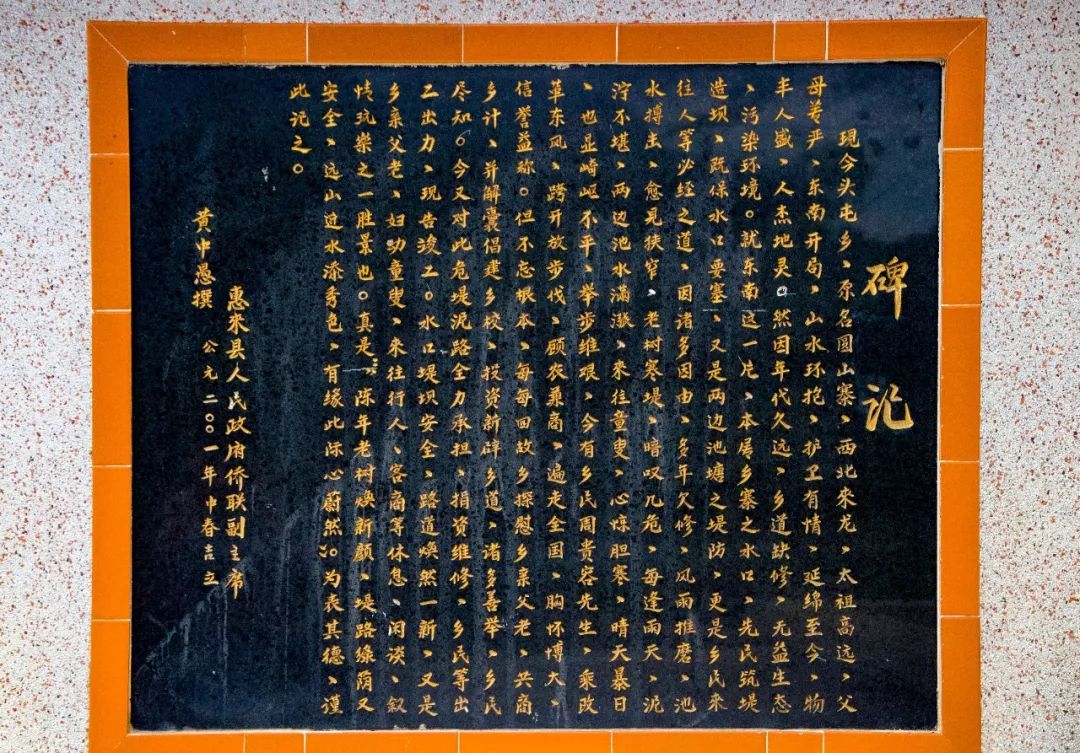 碑记
现今头屯乡、原名圆山寨、西北来龙、太祖高远、父
母姜严、东南开局、山水环抱、护卫有情、延绵至今、物
丰人盛、人杰地灵。然因年代久远、乡道缺修、无益生态
、污染环境。就东南这一片、本居乡寨之水口、先民筑堤
造坝、既保水口要塞、又是两边池塘之堤防、更是乡民来
往人等必经之道、因诸多因由、多年欠修、风雨推磨、池
水搏击、愈见狭窄、老树寒堤、暗叹几危、每逢雨天、泥
泞不堪、两边池水满溢、来往童叟、心惊胆寒、晴天暴日
、也显崎岖不平、举步维艰、今有乡民周贵容先生、乘政
革东风、跨开放步伐、顾农兼商、遍走全国、胸怀博大、
信誉益称。但不忘根本、每每回故乡探慰乡亲父老、共商
乡计、并解囊倡建乡校、投资新辟乡道、诸多善举、乡民
尽知。今又对此危堤泥路全力承担、捐资维修、乡民等出
工出力、现告竣工。水口堤坝安全、路道焕然一新、又是
乡亲父老、妇幼童叟、来往行人、客商等休息、闲谈、叙
情玩乐之一胜景也。真是：陈年老树焕新颜、堤路绿荫又
安全、远山近水添秀色、有缘此际心蔚然：。为表其德、谨
此记之。
惠来县人民政府侨联副主席
黄中愚撰
公元二〇〇一年中春吉立